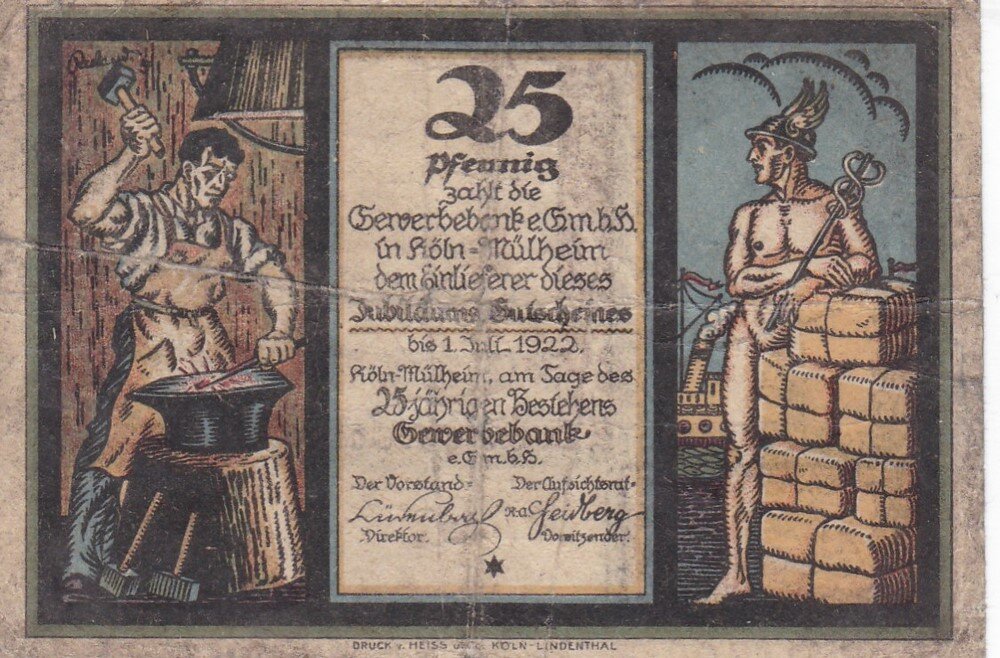 25
Pfennig
zahlt die
Gewerbebank e.G.m.b.H.
in Köln-Mülheim
dem Einlieferer dieses
Jubiläums Gutscheines
bis 1. Juli 1922.
Köln-Mülheim, am Tage des
25-jährigen Bestehens
Gewerbebank
e.G.m.b.H.
Der Vorstand: Der Aufsichtsrat:
R.A. Heidberg
Direktor. Vorsitzender.
DRUCK v. HEISS KÖLN-LINDENTHAL